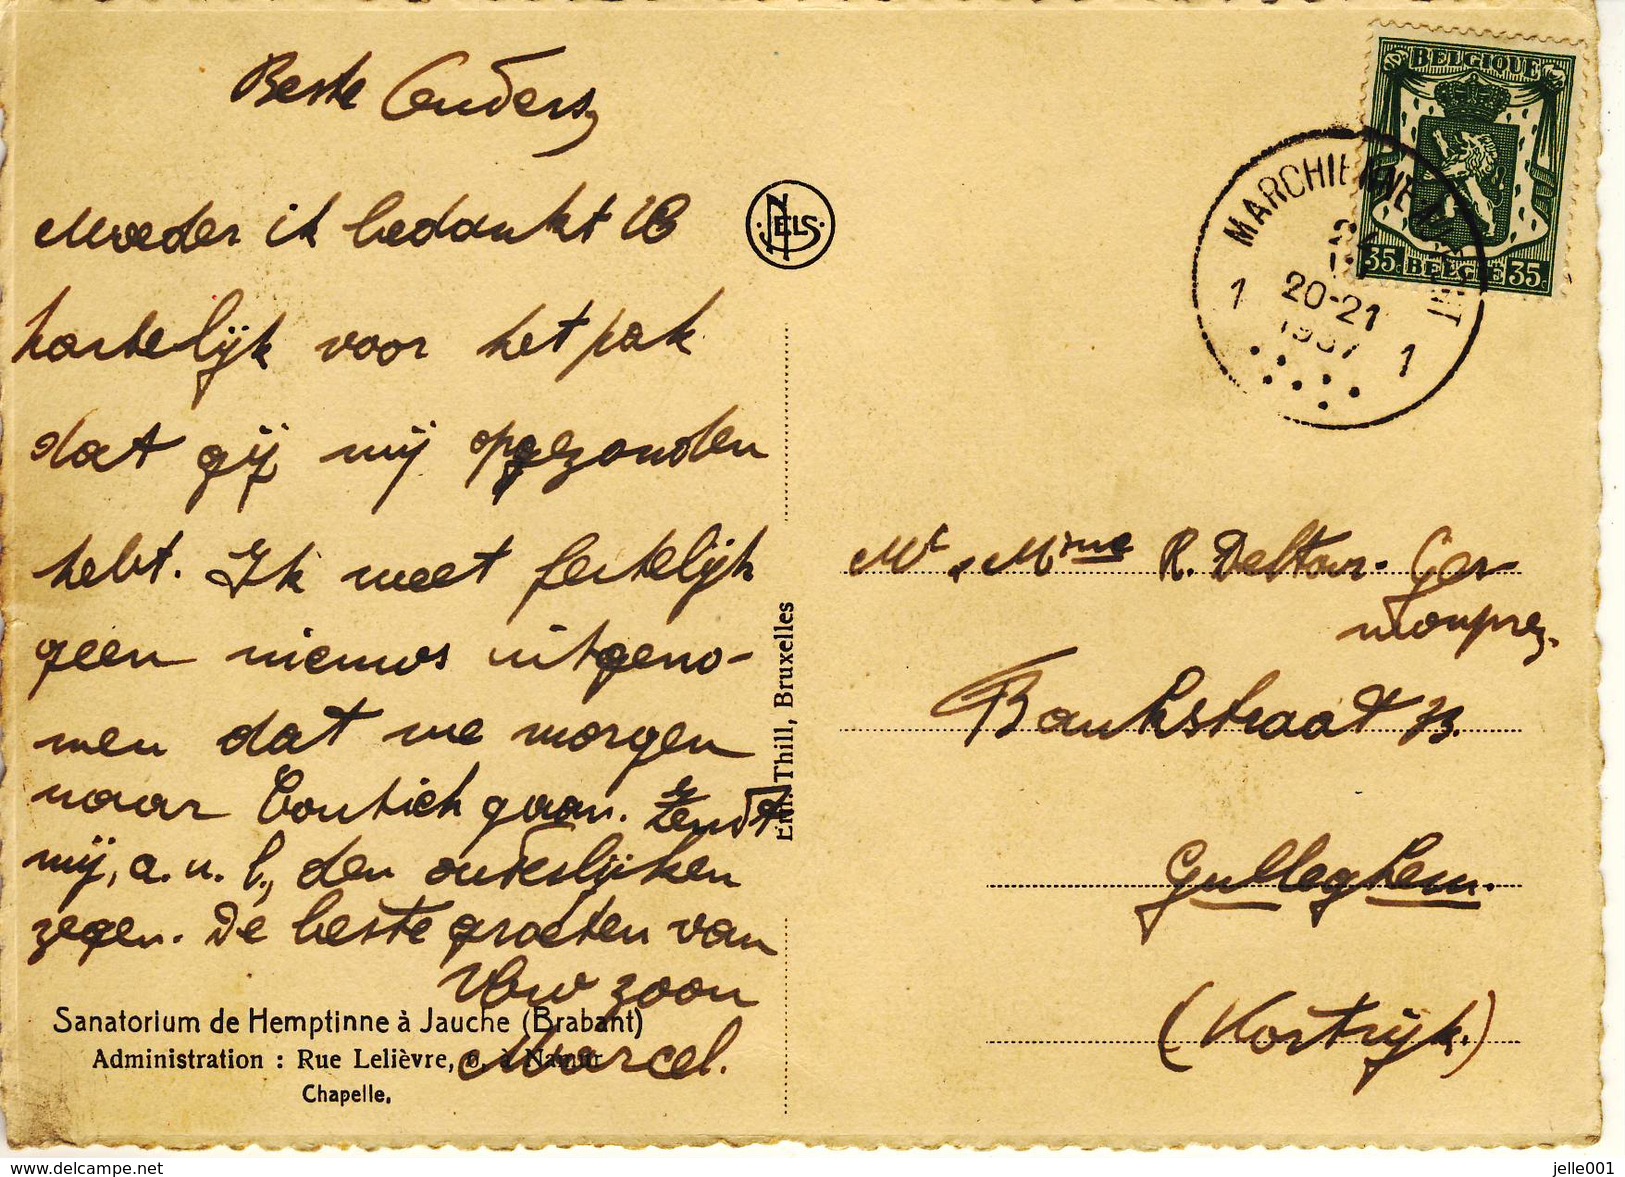 Beste Ouders,
Moeder ik bedankt U
hartelijk voor het pak
dat gij mij opgezonden
hebt. Ik weet feitelijk
geen nieuws uitgeno-
men dat we morgen
naar Contich gaan. Zendt
mij, a.u.b., den ouderlijken
zegen. De beste groeten van
Uw zoon
Marcel.
Sanatorium de Hemptinne à Jauche (Brabant)
Administration : Rue Lelièvre, 6, à Namur
Chapelle.
NELS
Ern. Thill, Bruxelles
BELGIQUE
35c BELGIE 35c
MARCHIENNE-AU-PONT
1 20-21 1
1937
Mr & Mme R. Deltour-Ger-
monprez.
Bankstraat 73.
Gulleghem.
(Kortrijk.)
delcampe.net
jelle001